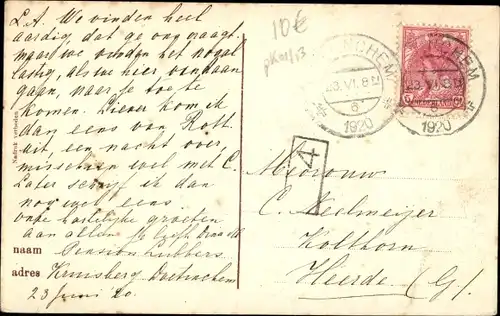 L.A. We vinden heel
aardig dat ge ons vraagt
maar we vonden het nogal
lastig, als we hier vandaan
gaan, naar je toe te
komen. Liever kom ik
dan eens van Rott.
uit, een nacht over,
misschien wel met C.
Later schrijf ik dan
nog wel eens
onze hartelijke groeten
aan allen
naam Pension Lubbers
adres Kruisberg Doetinchem
23 Juni 20.
Nadruk verboden
10€
23.VI.8
6
1920
CHEM
23.VI.8
1920
NEDERLAND
4
Mevrouw
C. Neelmeijer
Kolthorn
Heerde (G).